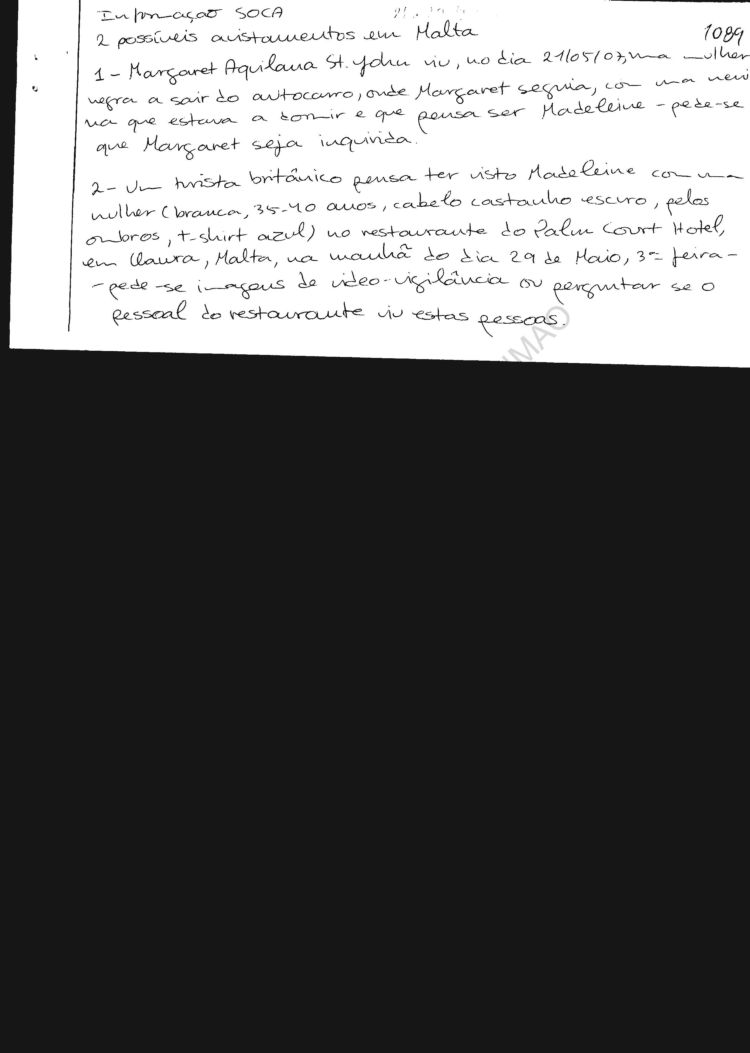 Informação SOCA
2 possíveis avistamentos em Malta
1089
1 - Margaret Aquilana St. John viu, no dia 21/05/07, uma mulher
negra a sair do autocarro, onde Margaret seguia, com uma meni
na que estava a dormir e que pensa ser Madeleine - pede-se
que Margaret seja inquirida.
2 - Um turista britânico pensa ter visto Madeleine com uma
mulher (branca, 35-40 anos, cabelo castanho escuro, pelos
ombros, t-shirt azul) no restaurante do Palm Court Hotel,
em Qawra, Malta, na manhã do dia 29 de Maio, 3ª feira -
- pede-se imagens de video-vigilância ou perguntar se o
pessoal do restaurante viu estas pessoas.